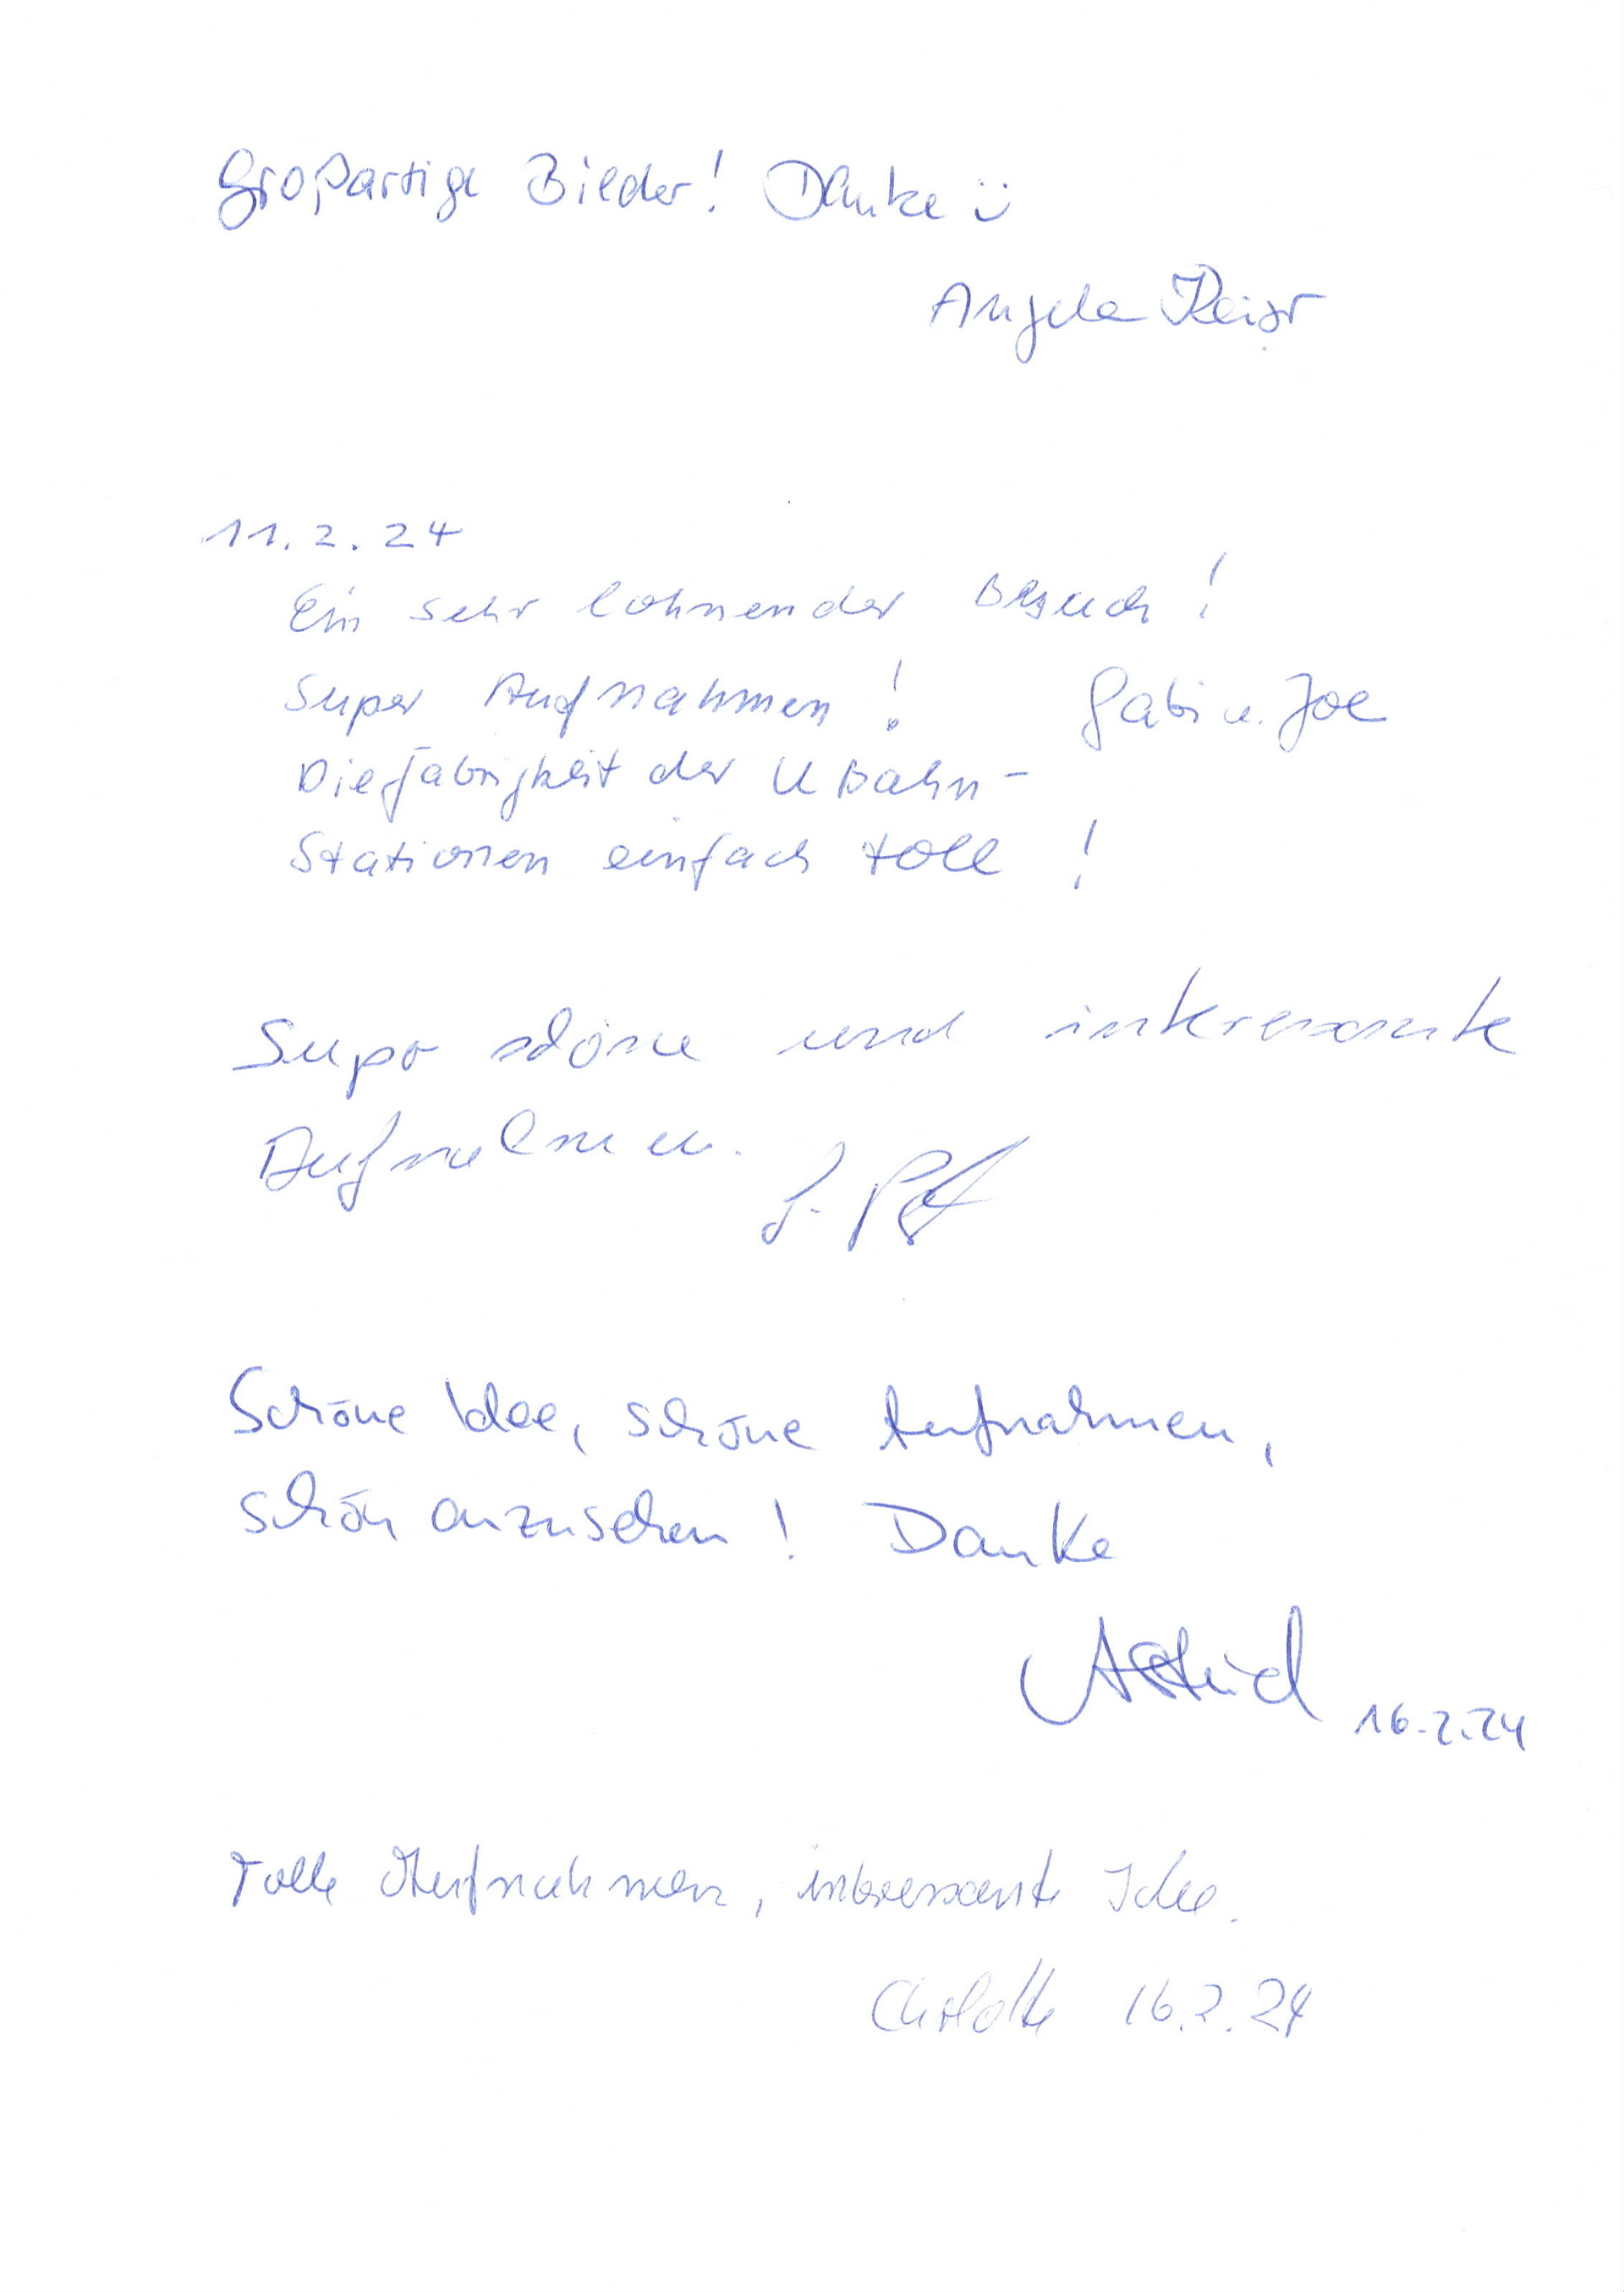 Großartige Bilder! Danke ü
Angela
11.2.24
Ein sehr lohnender Besuch!
Super Aufnahmen! Gabi u. Joe
der U Bahn-
Stationen einfach toll!
Super schöne und interessante
Aufnahmen.
Schöne Idee, schöne Aufnahmen,
schön anzusehen! Danke
Astrid 16.2.24
Tolle Aufnahmen, interessante Idee.
16.2.24